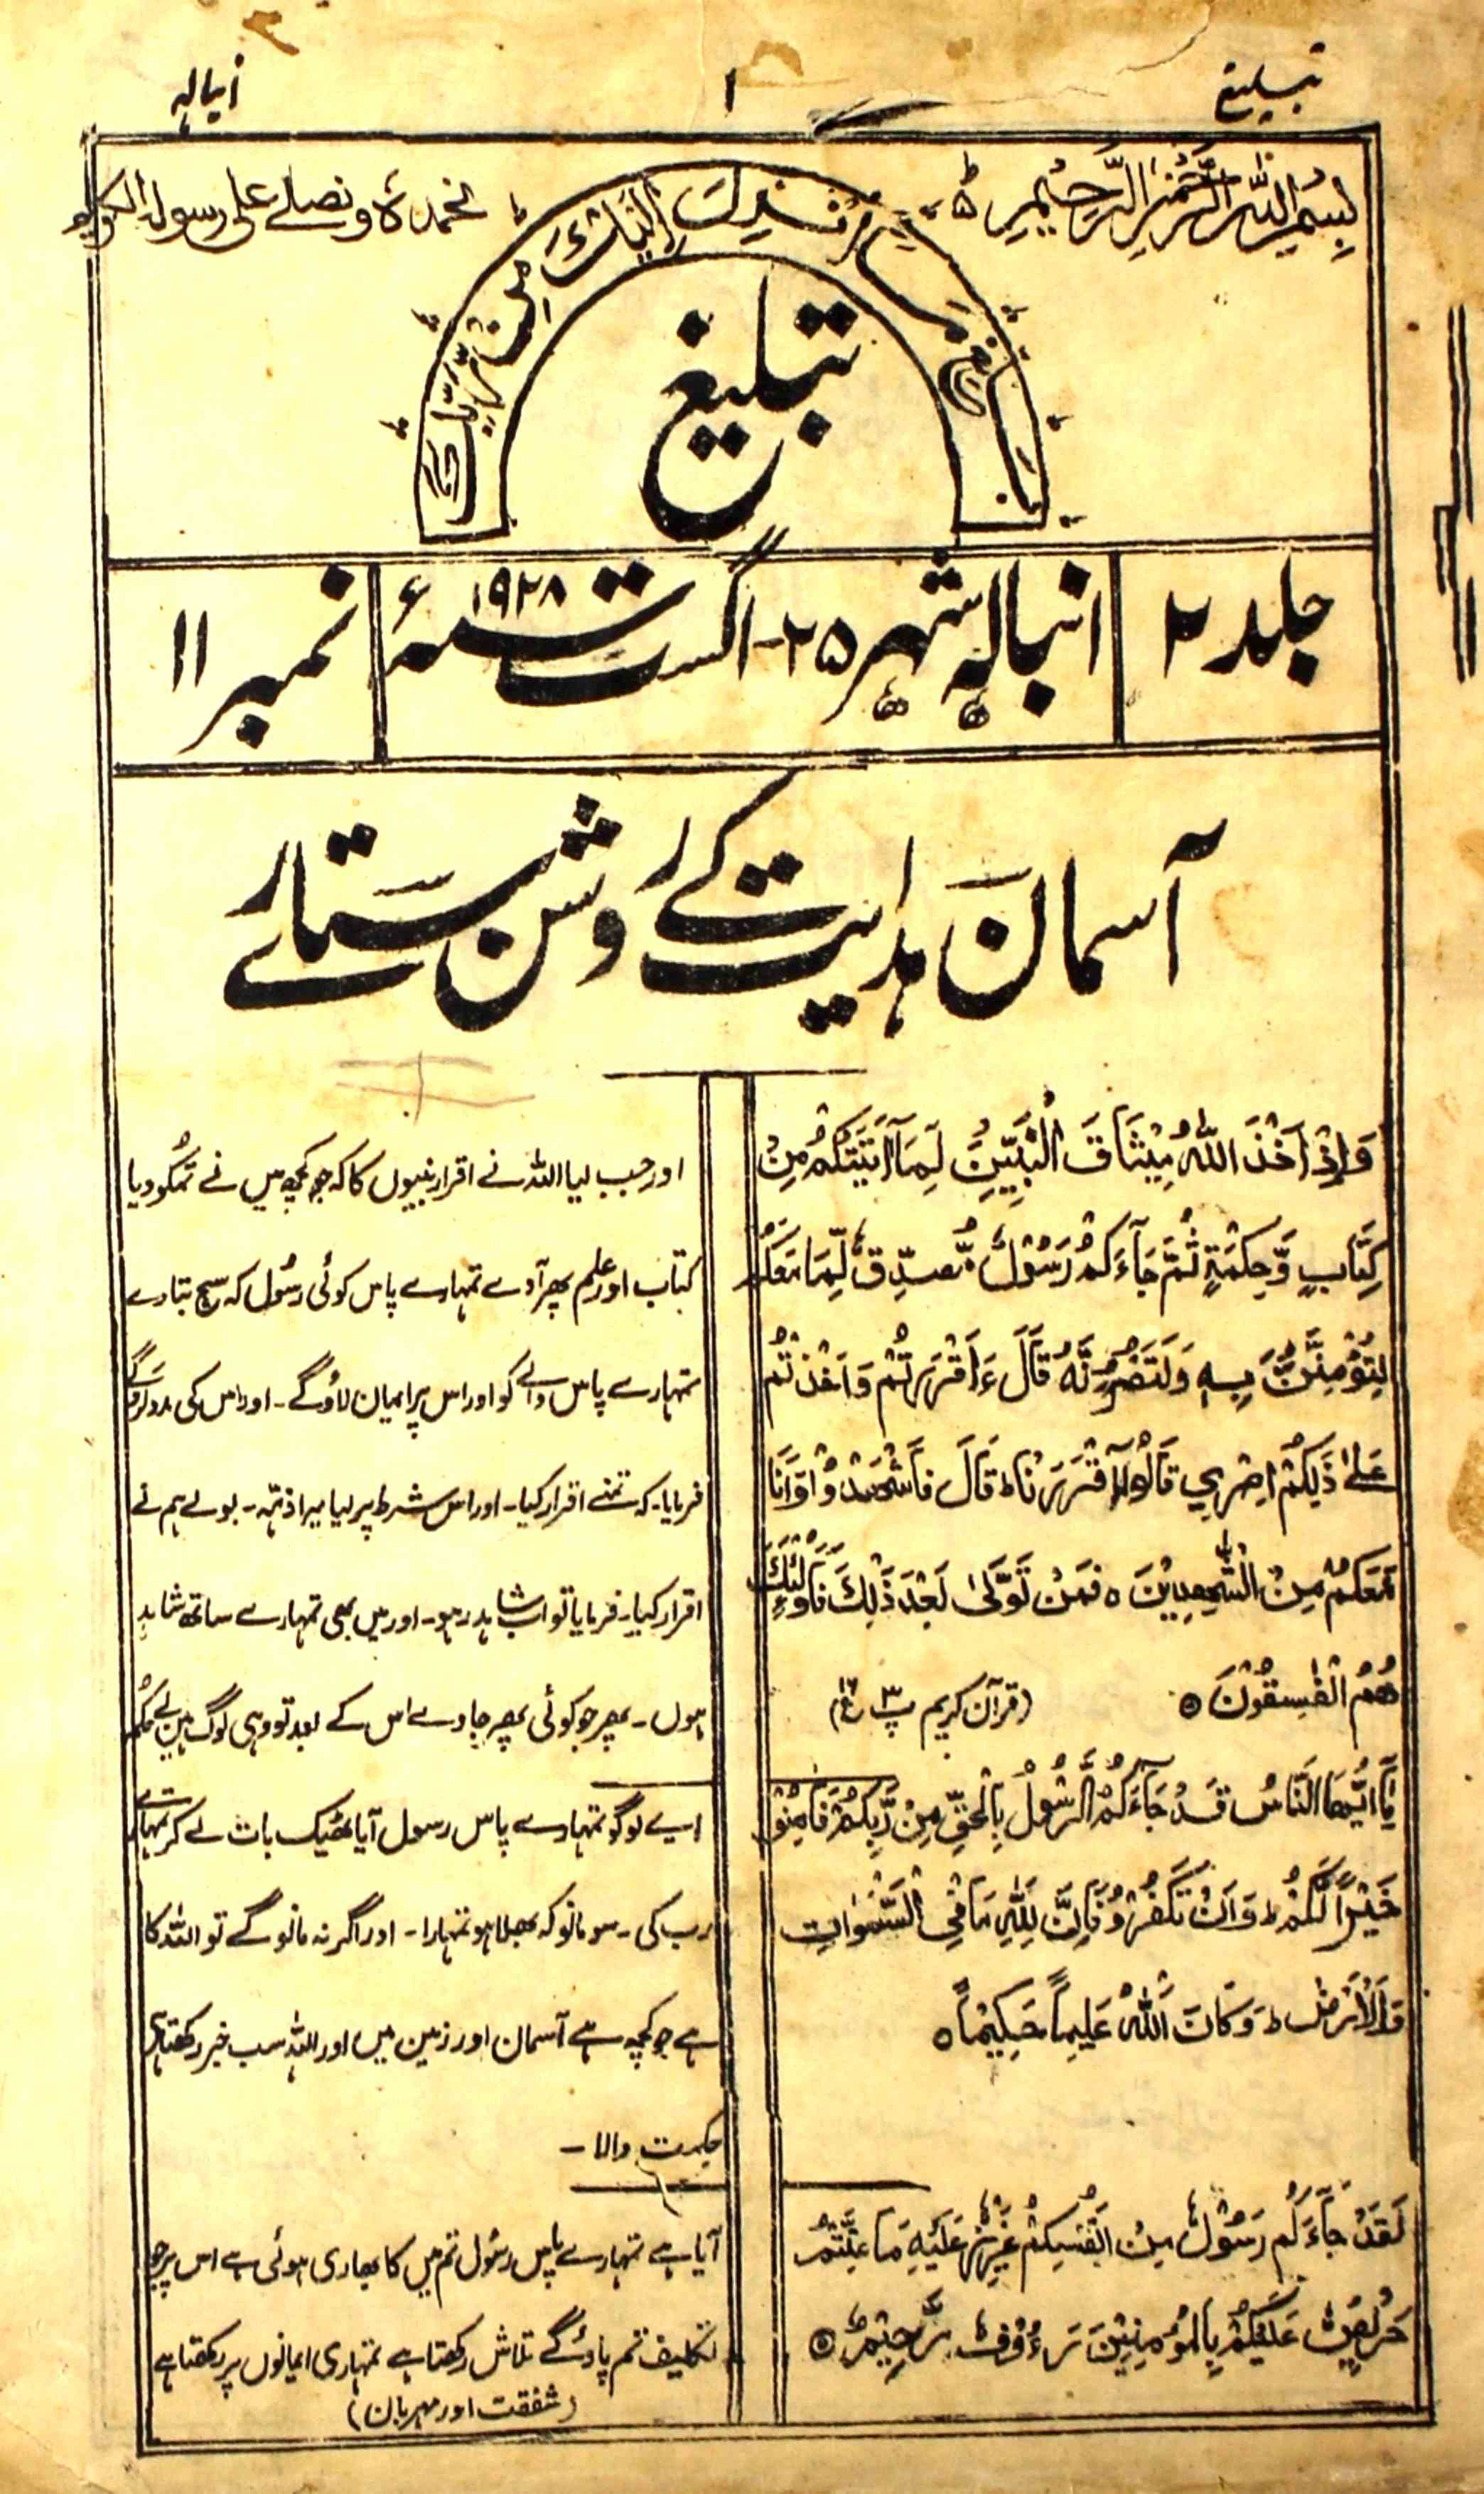 تبلیغ
۱
انبالہ
بِسْمِ اللّٰهِ الرَّحْمٰنِ الرَّحِيْمِ ط
نحمدہٗ و نصلے علی رسولہ الکریم
مَا اُنْزِلَ اِلَيْكَ مِنْ رَّبِّكَ
تبلیغ
جلد ۲
انبالہ شہر ۲۵۔ اگست سنہ ۱۹۲۸ء
نمبر ۱۱
آسمان ہدایت کے روشن ستارے
وَاِذْ اَخَذَ اللّٰهُ مِيْثَاقَ النَّبِيِّيْنَ لَمَآ اٰتَيْتُكُمْ مِنْ
كِتَابٍ وَّحِكْمَةٍ ثُمَّ جَآءَكُمْ رَسُوْلٌ مُّصَدِّقٌ لِّمَا مَعَكُمْ
لَتُؤْمِنُنَّ بِهٖ وَلَتَنْصُرُنَّهٗ قَالَ ءَاَقْرَرْتُمْ وَاَخَذْتُمْ
عَلٰى ذٰلِكُمْ اِصْرِي قَالُوْا اَقْرَرْنَا ط قَالَ فَاشْهَدُوْا وَاَنَا
مَعَكُمْ مِنَ الشّٰهِدِيْنَ ہ فَمَنْ تَوَلّٰى بَعْدَ ذٰلِكَ فَاُولٰٓئِكَ
هُمُ الْفٰسِقُوْنَ ہ (قرآن کریم پ ۳ ع ۱۷)
يٰٓاَيُّهَا النَّاسُ قَدْ جَآءَكُمُ الرَّسُوْلُ بِالْحَقِّ مِنْ رَّبِّكُمْ فَاٰمِنُوْا
خَيْرًا لَّكُمْ ط وَاِنْ تَكْفُرُوْ فَاِنَّ لِلّٰهِ مَا فِى السَّمٰوَاتِ
وَالْاَرْضِ ط وَكَانَ اللّٰهُ عَلِيمًا حَكِيْمًا ہ
لَقَدْ جَآءَكُم رَسُوْلٌ مِنْ اَنْفُسِكُمْ عَزِيْزٌ عَلَيْهِ مَا عَنِتُّمْ
حَرِيْصٌ عَلَيْكُمْ بِالْمُؤْمِنِيْنَ رَءُوْفٌ رَّحِيْمٌ ہ
اور جب لیا اللہ نے اقرار نبیوں کا کہ جو کچھ میں نے تمکو دیا
کتاب اور علم پھر آوے تمہارے پاس کوئی رسُول کہ سچ بتاوے
تمہارے پاس والے کو اور اس پر ایمان لاؤگے۔ اور اس کی مدد کروگے
فرمایا۔ کہ تمنے اقرار کیا۔ اور اس شرط پر لیا میرا ذمّہ۔ بولے ہم نے
اقرار کیا۔ فرمایا تو اب شاہد رہو۔ اور میں بھی تمہارے ساتھ شاہد
ہوں۔ پھر جو کوئی پھر جاوے اس کے بعد تو وہی لوگ ہیں بے حکم
اے لوگو تمہارے پاس رسول آیا ٹھیک بات لے کر تمہارے
رب کی۔ سو مانو کہ بھلا ہو تمہارا۔ اور اگر نہ مانو گے تو اللہ کا
ہے جو کچھ ہے آسمان اور زمین میں اور اللہ سب خبر رکھتا ہے
حکمت والا۔
آیا ہے تمہارے پاس رسُول تم میں کا بھاری ہوئی ہے اس پر جو
تکلیف تم پاؤ گے تلاش رکھتا ہے تمہاری ایمانوں پر رکھتا ہے
(شفقت اور مہربان)